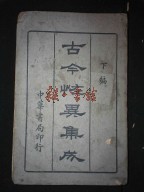 下編
古今怪異集成
中華書局印行